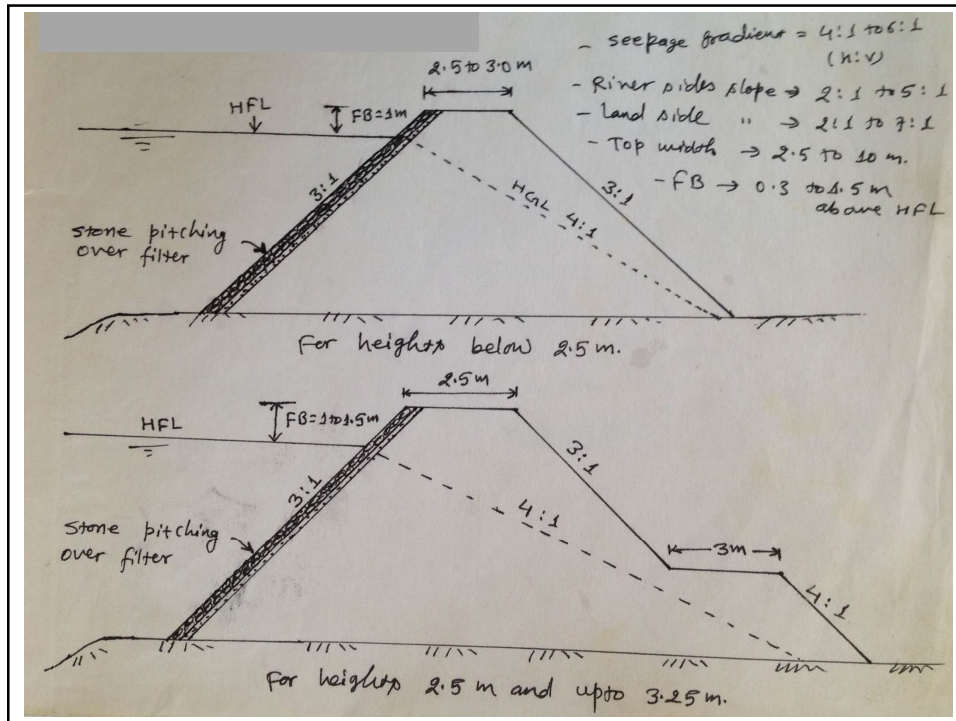 - seepage gradient = 4:1 to 6:1
(h:v)
- River sides slope → 2:1 to 5:1
- Land side " → 2:1 to 7:1
- Top width → 2.5 to 10 m.
- FB → 0.3 to 1.5 m
above HFL
2.5 to 3.0 m
HFL
FB=1m
3:1
HGL 4:1
3:1
stone pitching
over filter
For heights below 2.5 m.
2.5 m
HFL
FB=1 to 1.5m
3:1
3:1
4:1
3m
4:1
Stone pitching
over filter
For heights 2.5 m and upto 3.25 m.